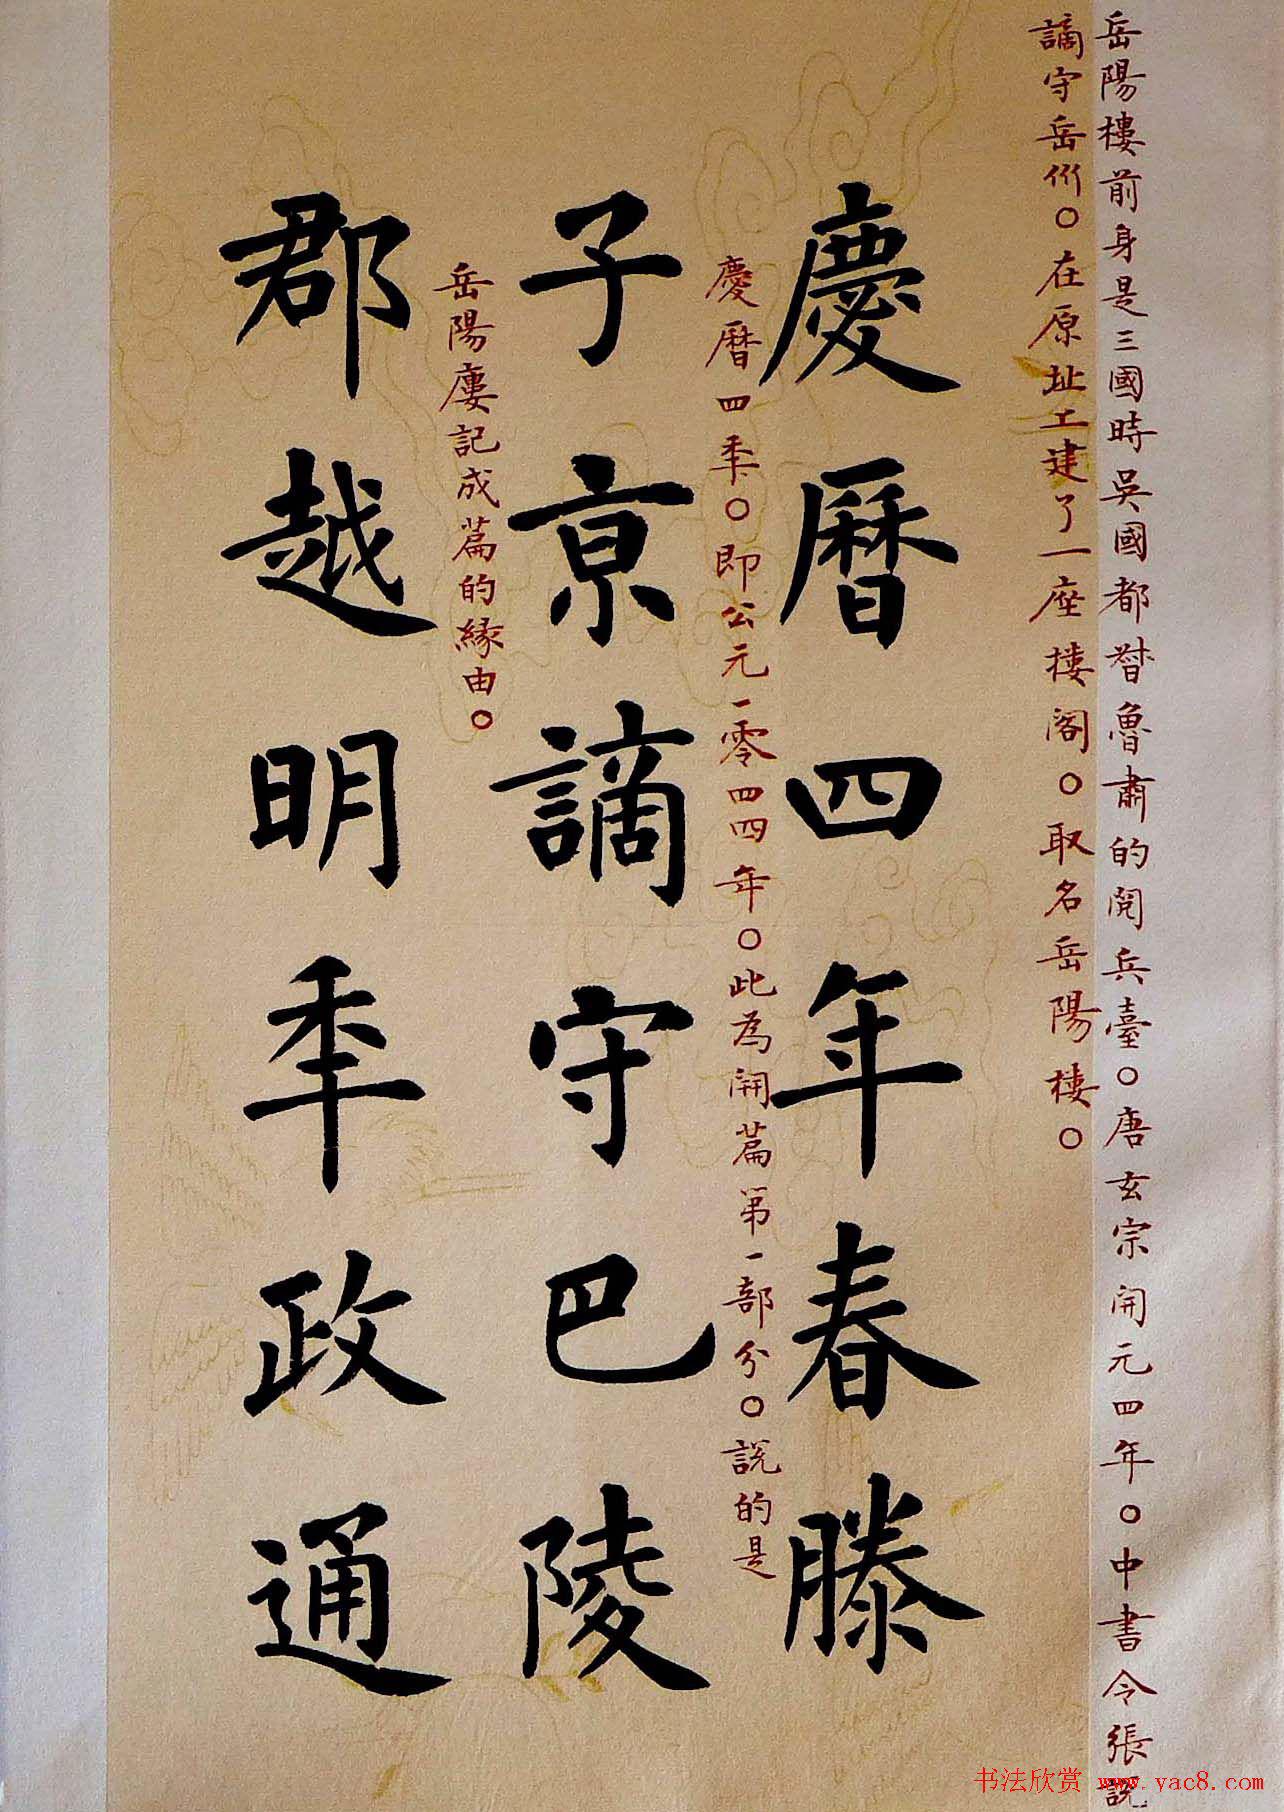 岳陽樓前身是三國時吳國都督魯肅的閱兵臺○唐玄宗開元四年○中書令張說
謫守岳州○在原址工建了一座樓閣○取名岳陽樓○
慶曆四年春滕
慶曆四秊○即公元一零四四年○此為開篇第一部分○說的是
子亰謫守巴陵
岳陽廔記成篇的緣由○
郡越明秊政通
书法欣赏 www.yac8.com